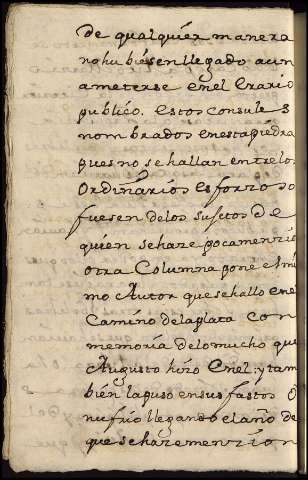 de qualquier manera
no hubiesen llegado aun
a meterse en el Erario
publico. Estos consules
nombrados en esta piedra
pues no se hallan entre los
Ordinarios es forzoso
fuesen de los sujetos de
quien se haze poca menzio
otra Columna pone el mis
mo Autor que se hallo en el
Camino de la plata con
memoria de lo mucho que
Augusto hizo en el. y tam
bien la puso en sus fastos O
nufrio llegando el año de
que se haze menzion